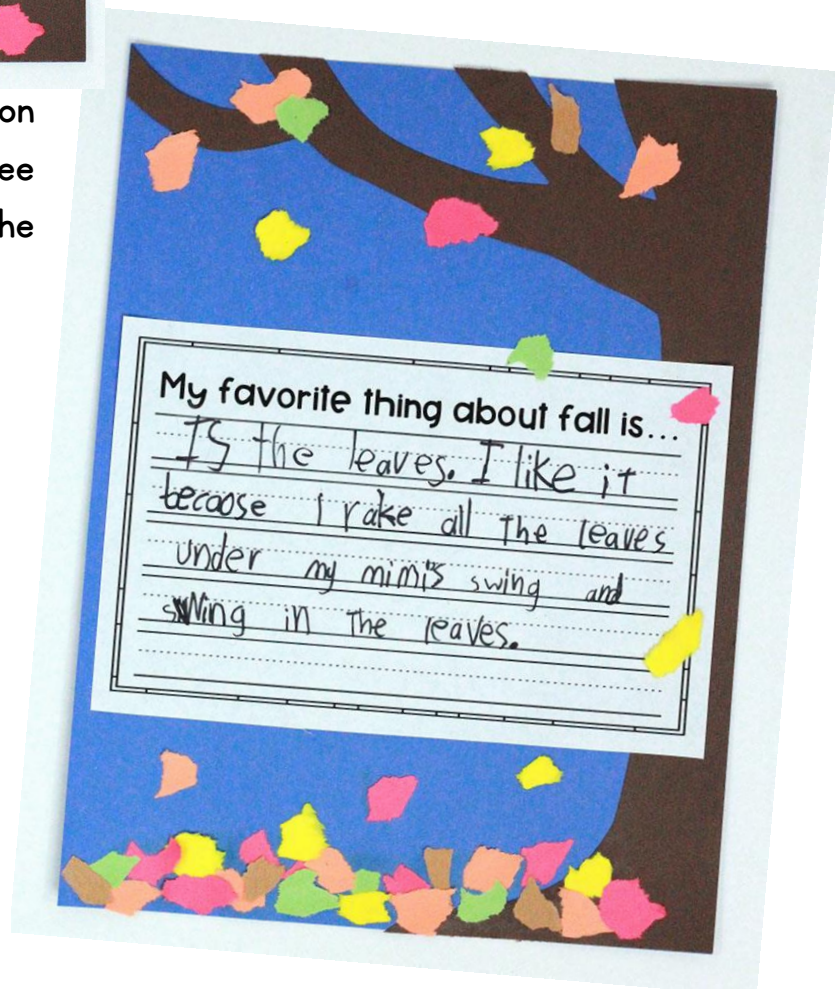 on
ee
he
My favorite thing about fall is...
IS the leaves. I like it
becaose I rake all the leaves
under my mimi's swing and
swing in the leaves.